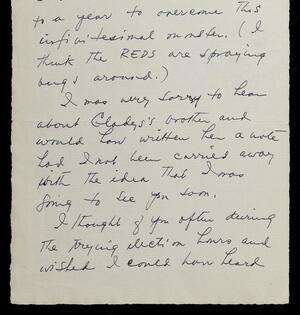 to a year to overcome this
infinitesimal monster. (I
think the REDS are spraying
bugs around.)
I was very sorry to hear
about Gladys's brother and
would have written her a note
had I not been carried away
with the idea that I was
going to see you soon.
I thought of you often during
the trying election hours and
wished I could have heard